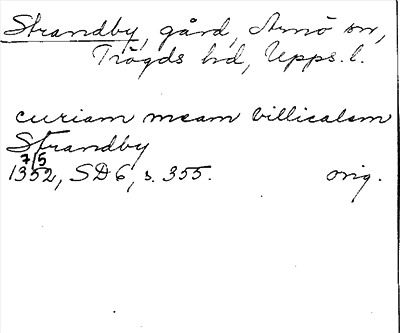 Strandby, gård, Arnö sn,
Trögds hd, Upps. l.
curiam meam villicalem
Strandby
7/5
1352, SD 6, s. 355. orig.